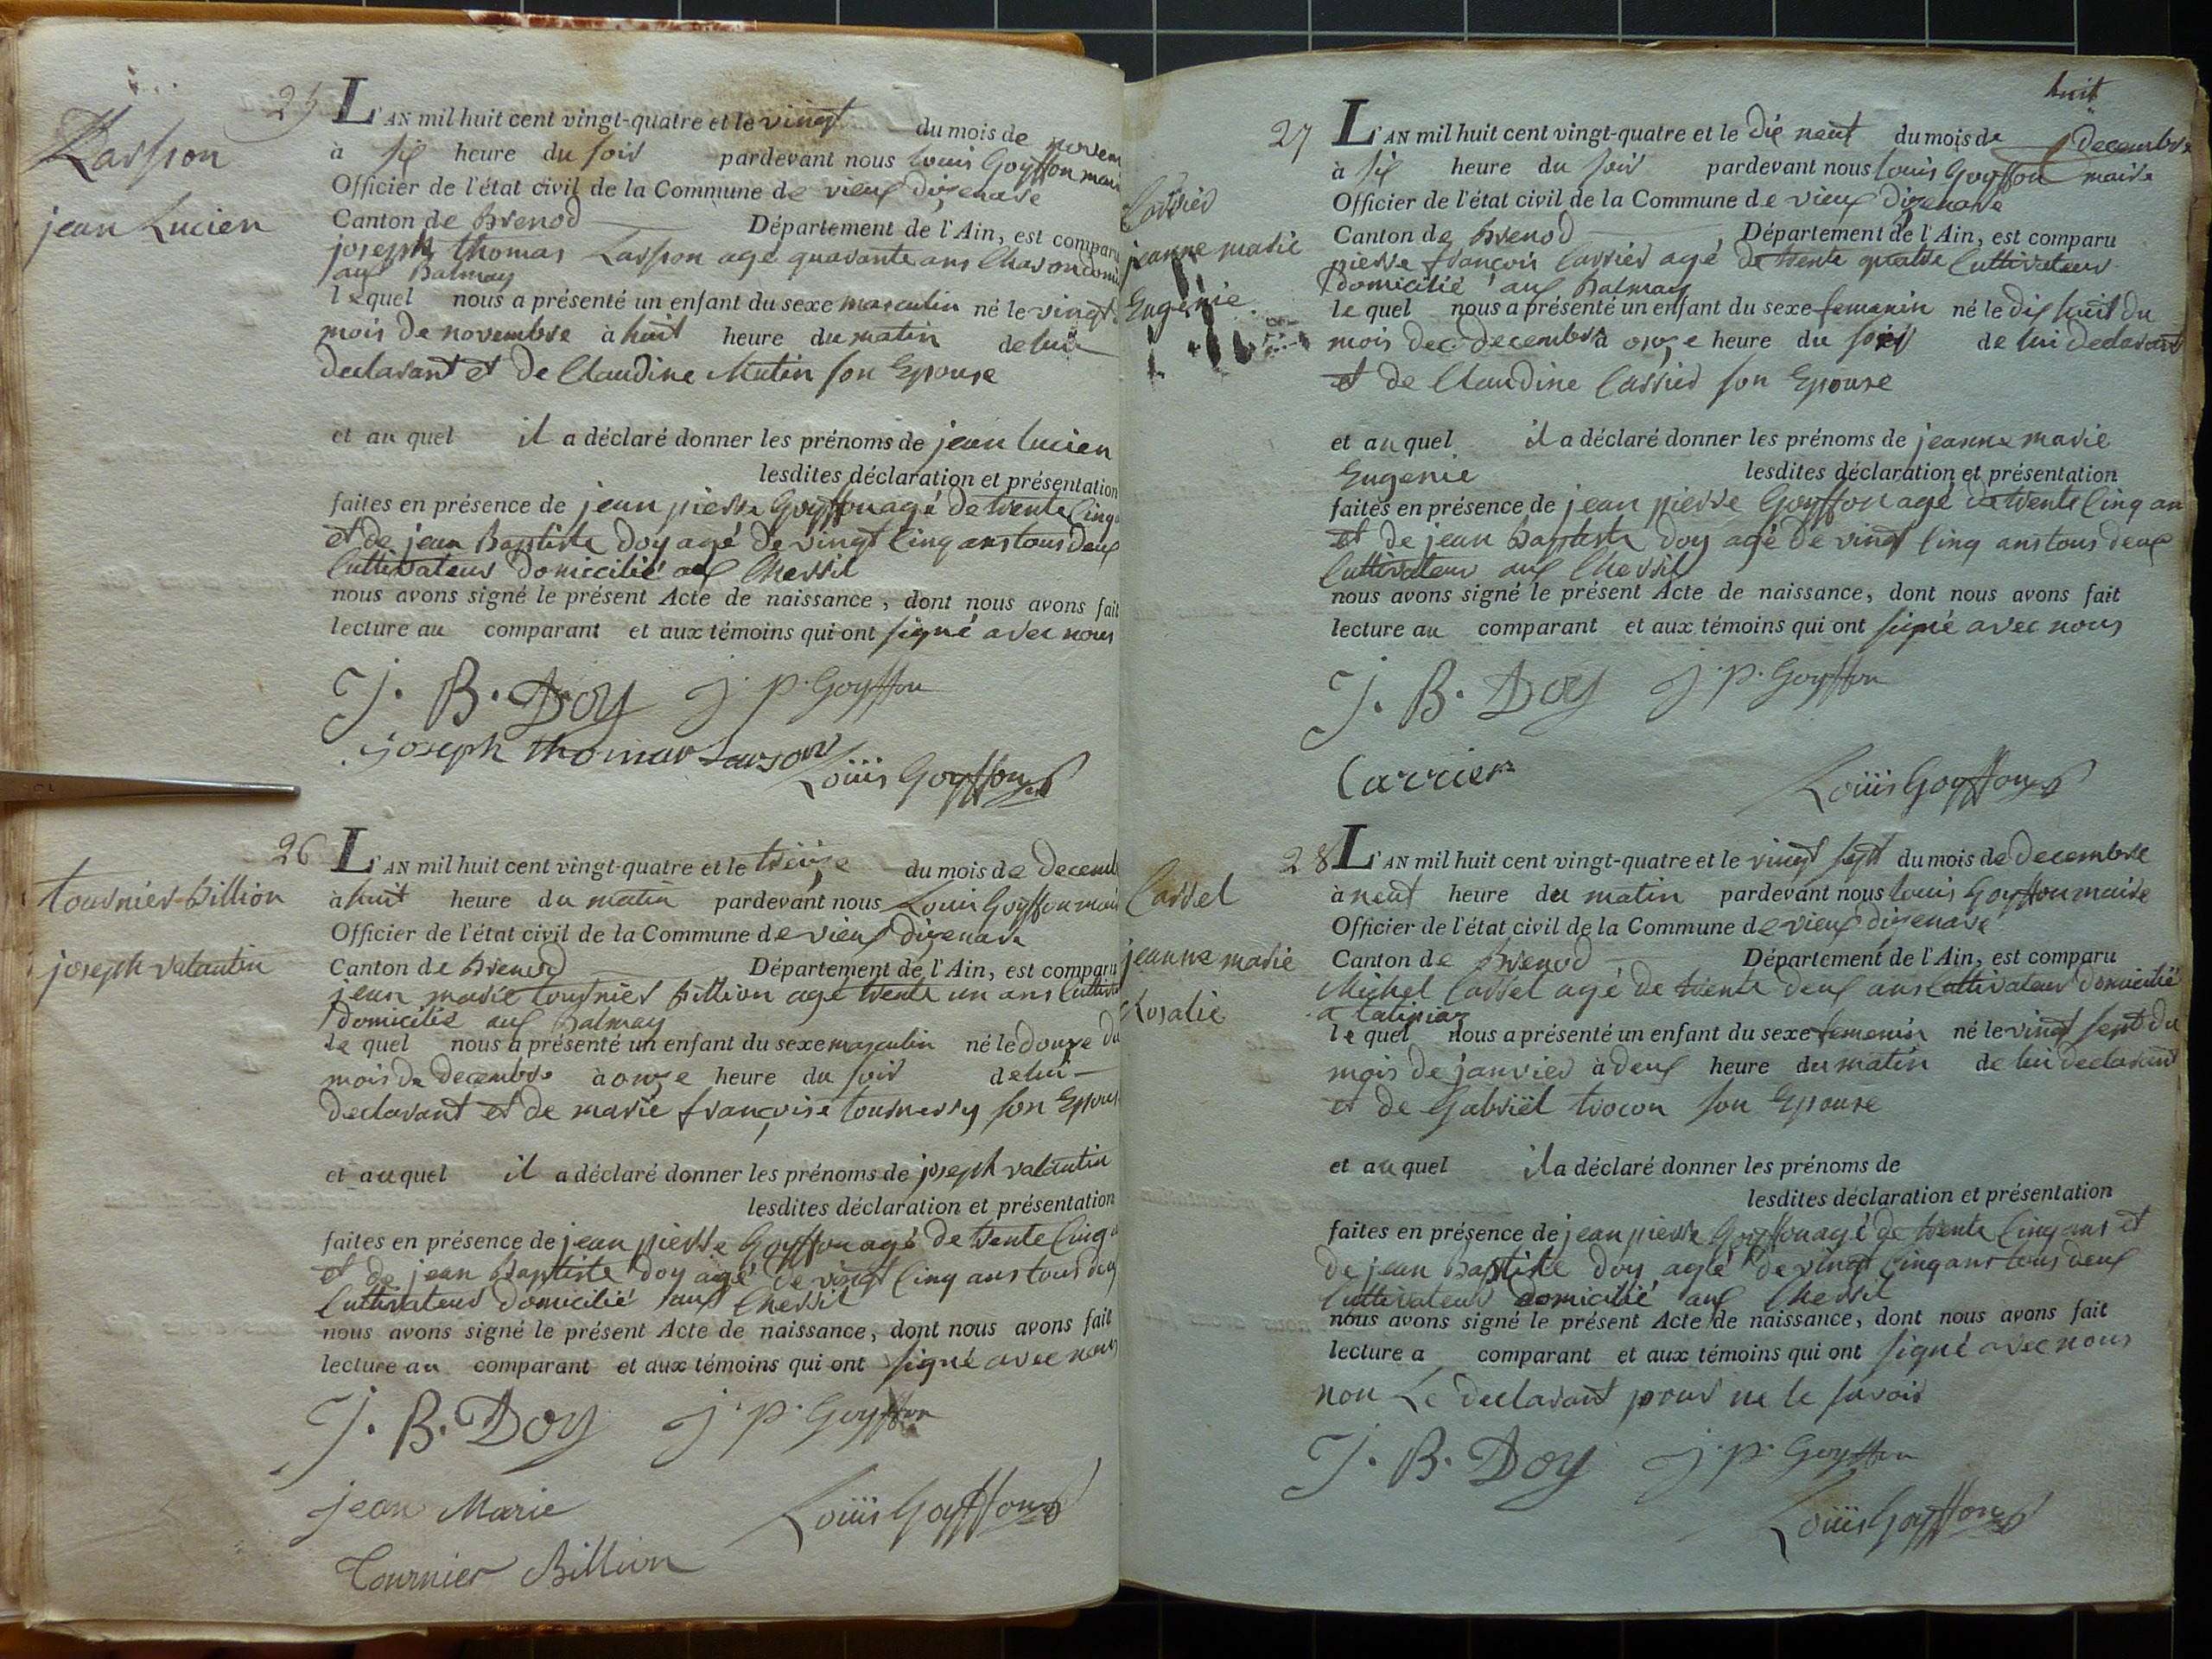 25
Larsson
jean Lucien
L'AN mil huit cent vingt-quatre et le vingt du mois de novem
à six heure du soir pardevant nous Louis Goyffon mair
Officier de l'état civil de la Commune de vieux dizenave
Canton de brenod Département de l'Ain, est comparu
joseph thomas Larsson agé quarante ans Charon domi
aux Balmay
lequel nous a présenté un enfant du sexe masculin né le vingt
mois de novembre à huit heure du matin de lui
declarant et de Claudine Mutin son Epouse
et au quel il a déclaré donner les prénoms de jean lucien
lesdites déclaration et présentation
faites en présence de jean pierre Goyffon agé de trente cinq
et de jean baptiste doy agé de vingt cinq ans tous deux
Cultivateur domicilié aux Chevril
nous avons signé le présent Acte de naissance, dont nous avons fait
lecture au comparant et aux témoins qui ont signé avec nous
J. B. Doy j. p. Goyffon
joseph thomas Larson
Loüis Goyffon
26
tournier billion
joseph valantin
L'AN mil huit cent vingt-quatre et le treize du mois de decemb
à huit heure du matin pardevant nous Louis Goyffon mair
Officier de l'état civil de la Commune de vieux dizenave
Canton de brenod Département de l'Ain, est comparu
jean marie tournier billion agé trente un ans Cultivat
domicilié aux Balmay
le quel nous a présenté un enfant du sexe masculin né le douze du
mois de decembre à onze heure du soir de lui
declarant et de marie françoise tournery son Epouse
et au quel il a déclaré donner les prénoms de joseph valantin
lesdites déclaration et présentation
faites en présence de jean pierre Goyffon agé de trente cinq a
et de jean baptiste doy agé de vingt cinq ans tous deux
Cultivateur domicilié aux Chevril
nous avons signé le présent Acte de naissance, dont nous avons fait
lecture au comparant et aux témoins qui ont signé avec nous
J. B. Doy j. p. Goyffon
jean Marie Loüis Goyffon
Tournier Billion
huit
27
Carrier
jeanne marie
Eugenie
L'AN mil huit cent vingt-quatre et le dix neuf du mois de decembre
à six heure du soir pardevant nous Louis Goyffon maire
Officier de l'état civil de la Commune de vieux dizenave
Canton de brenod Département de l'Ain, est comparu
pierre françois Carrier agé de trente quatre Cultivateur
domicilié aux Balmay
le quel nous a présenté un enfant du sexe femenin né le dix huit du
mois de decembre à onze heure du soir de lui declarant
et de Claudine Carrier son Epouse
et au quel il a déclaré donner les prénoms de jeanne marie
Eugenie lesdites déclaration et présentation
faites en présence de jean pierre Goyffon agé de trente cinq an
et de jean baptiste doy agé de vingt cinq ans tous deux
Cultivateur aux Chevril
nous avons signé le présent Acte de naissance, dont nous avons fait
lecture au comparant et aux témoins qui ont signé avec nous
J. B. Doy j. p. Goyffon
Carrier Loüis Goyffon
28
Carrel
jeanne marie
Rosalie
L'AN mil huit cent vingt-quatre et le vingt sept du mois de decembre
à neuf heure du matin pardevant nous Louis Goyffon maire
Officier de l'état civil de la Commune de vieux dizenave
Canton de brenod Département de l'Ain, est comparu
Michel Carrel agé de trente deux ans Cultivateur domicilié
a
le quel nous a présenté un enfant du sexe femenin né le vingt sept du
mois de janvier à deux heure du matin de lui declarant
et de Gabriël trocon son Epouse
et au quel il a déclaré donner les prénoms de
lesdites déclaration et présentation
faites en présence de jean pierre Goyffon agé de trente cinq ans et
de jean baptiste doy agé de vingt cinq ans tous deux
Cultivateur domicilié aux Chevril
nous avons signé le présent Acte de naissance, dont nous avons fait
lecture a comparant et aux témoins qui ont signé avec nous
non Le declarant pour ne le savoir
J. B. Doy j. p. Goyffon
Loüis Goyffon